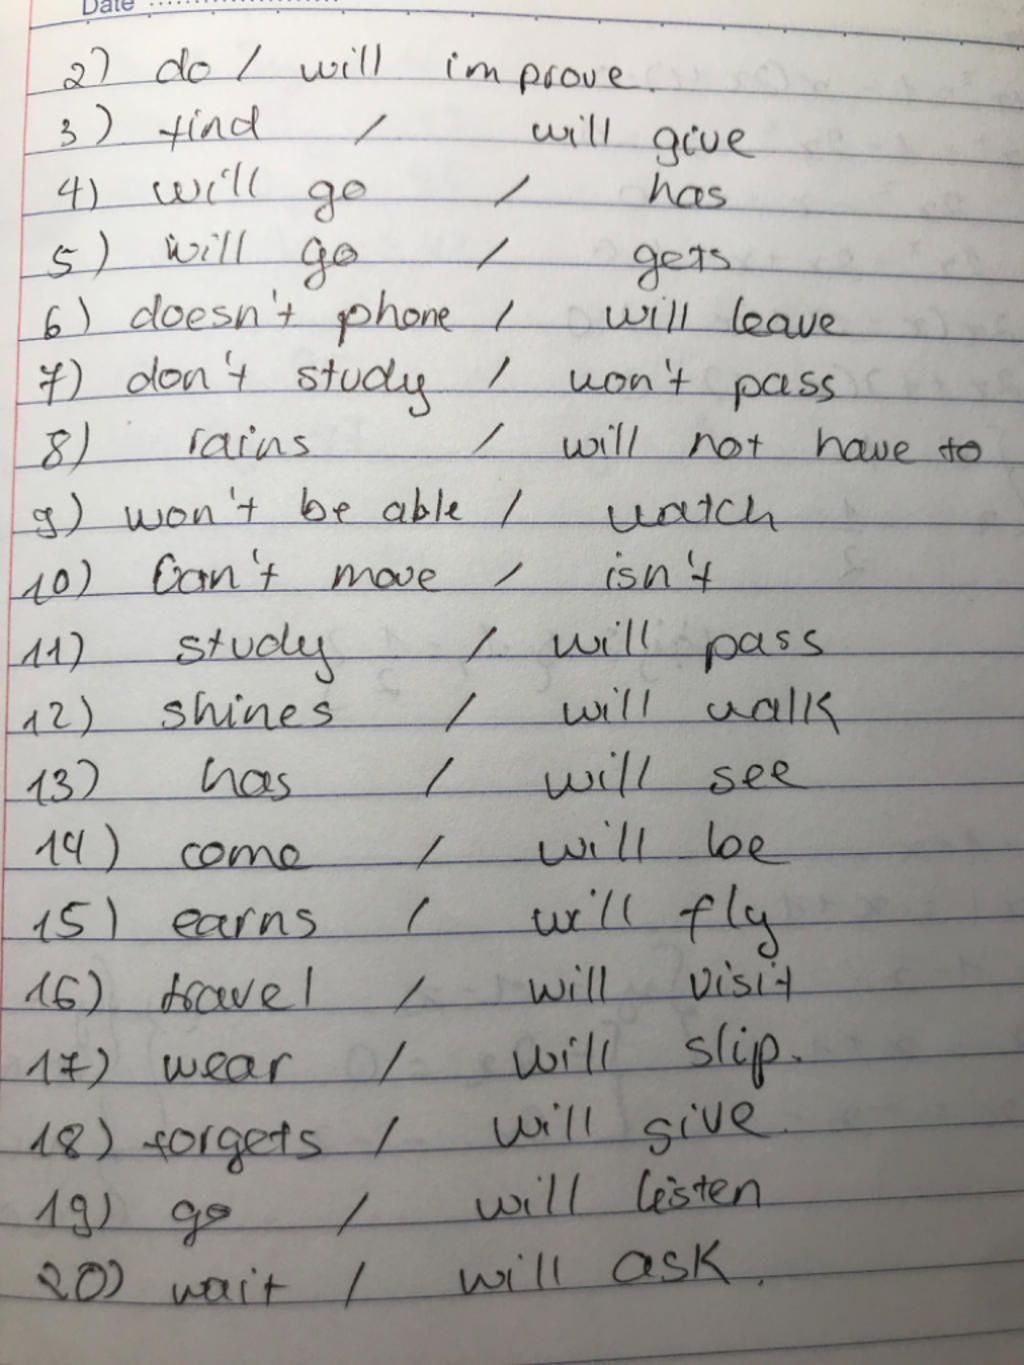 Date
2) do / will improve.
3) find / will give
4) will go / has
5) will go / gets
6) doesn't phone / will leave
7) don't study / won't pass
8) rains / will not have to
9) won't be able / watch
10) Can't move / isn't
11) study / will pass
12) shines / will walk
13) has / will see
14) come / will be
15) earns / will fly
16) travel / will visit
17) wear / will slip.
18) forgets / will give.
19) go / will listen
20) wait / will ask.